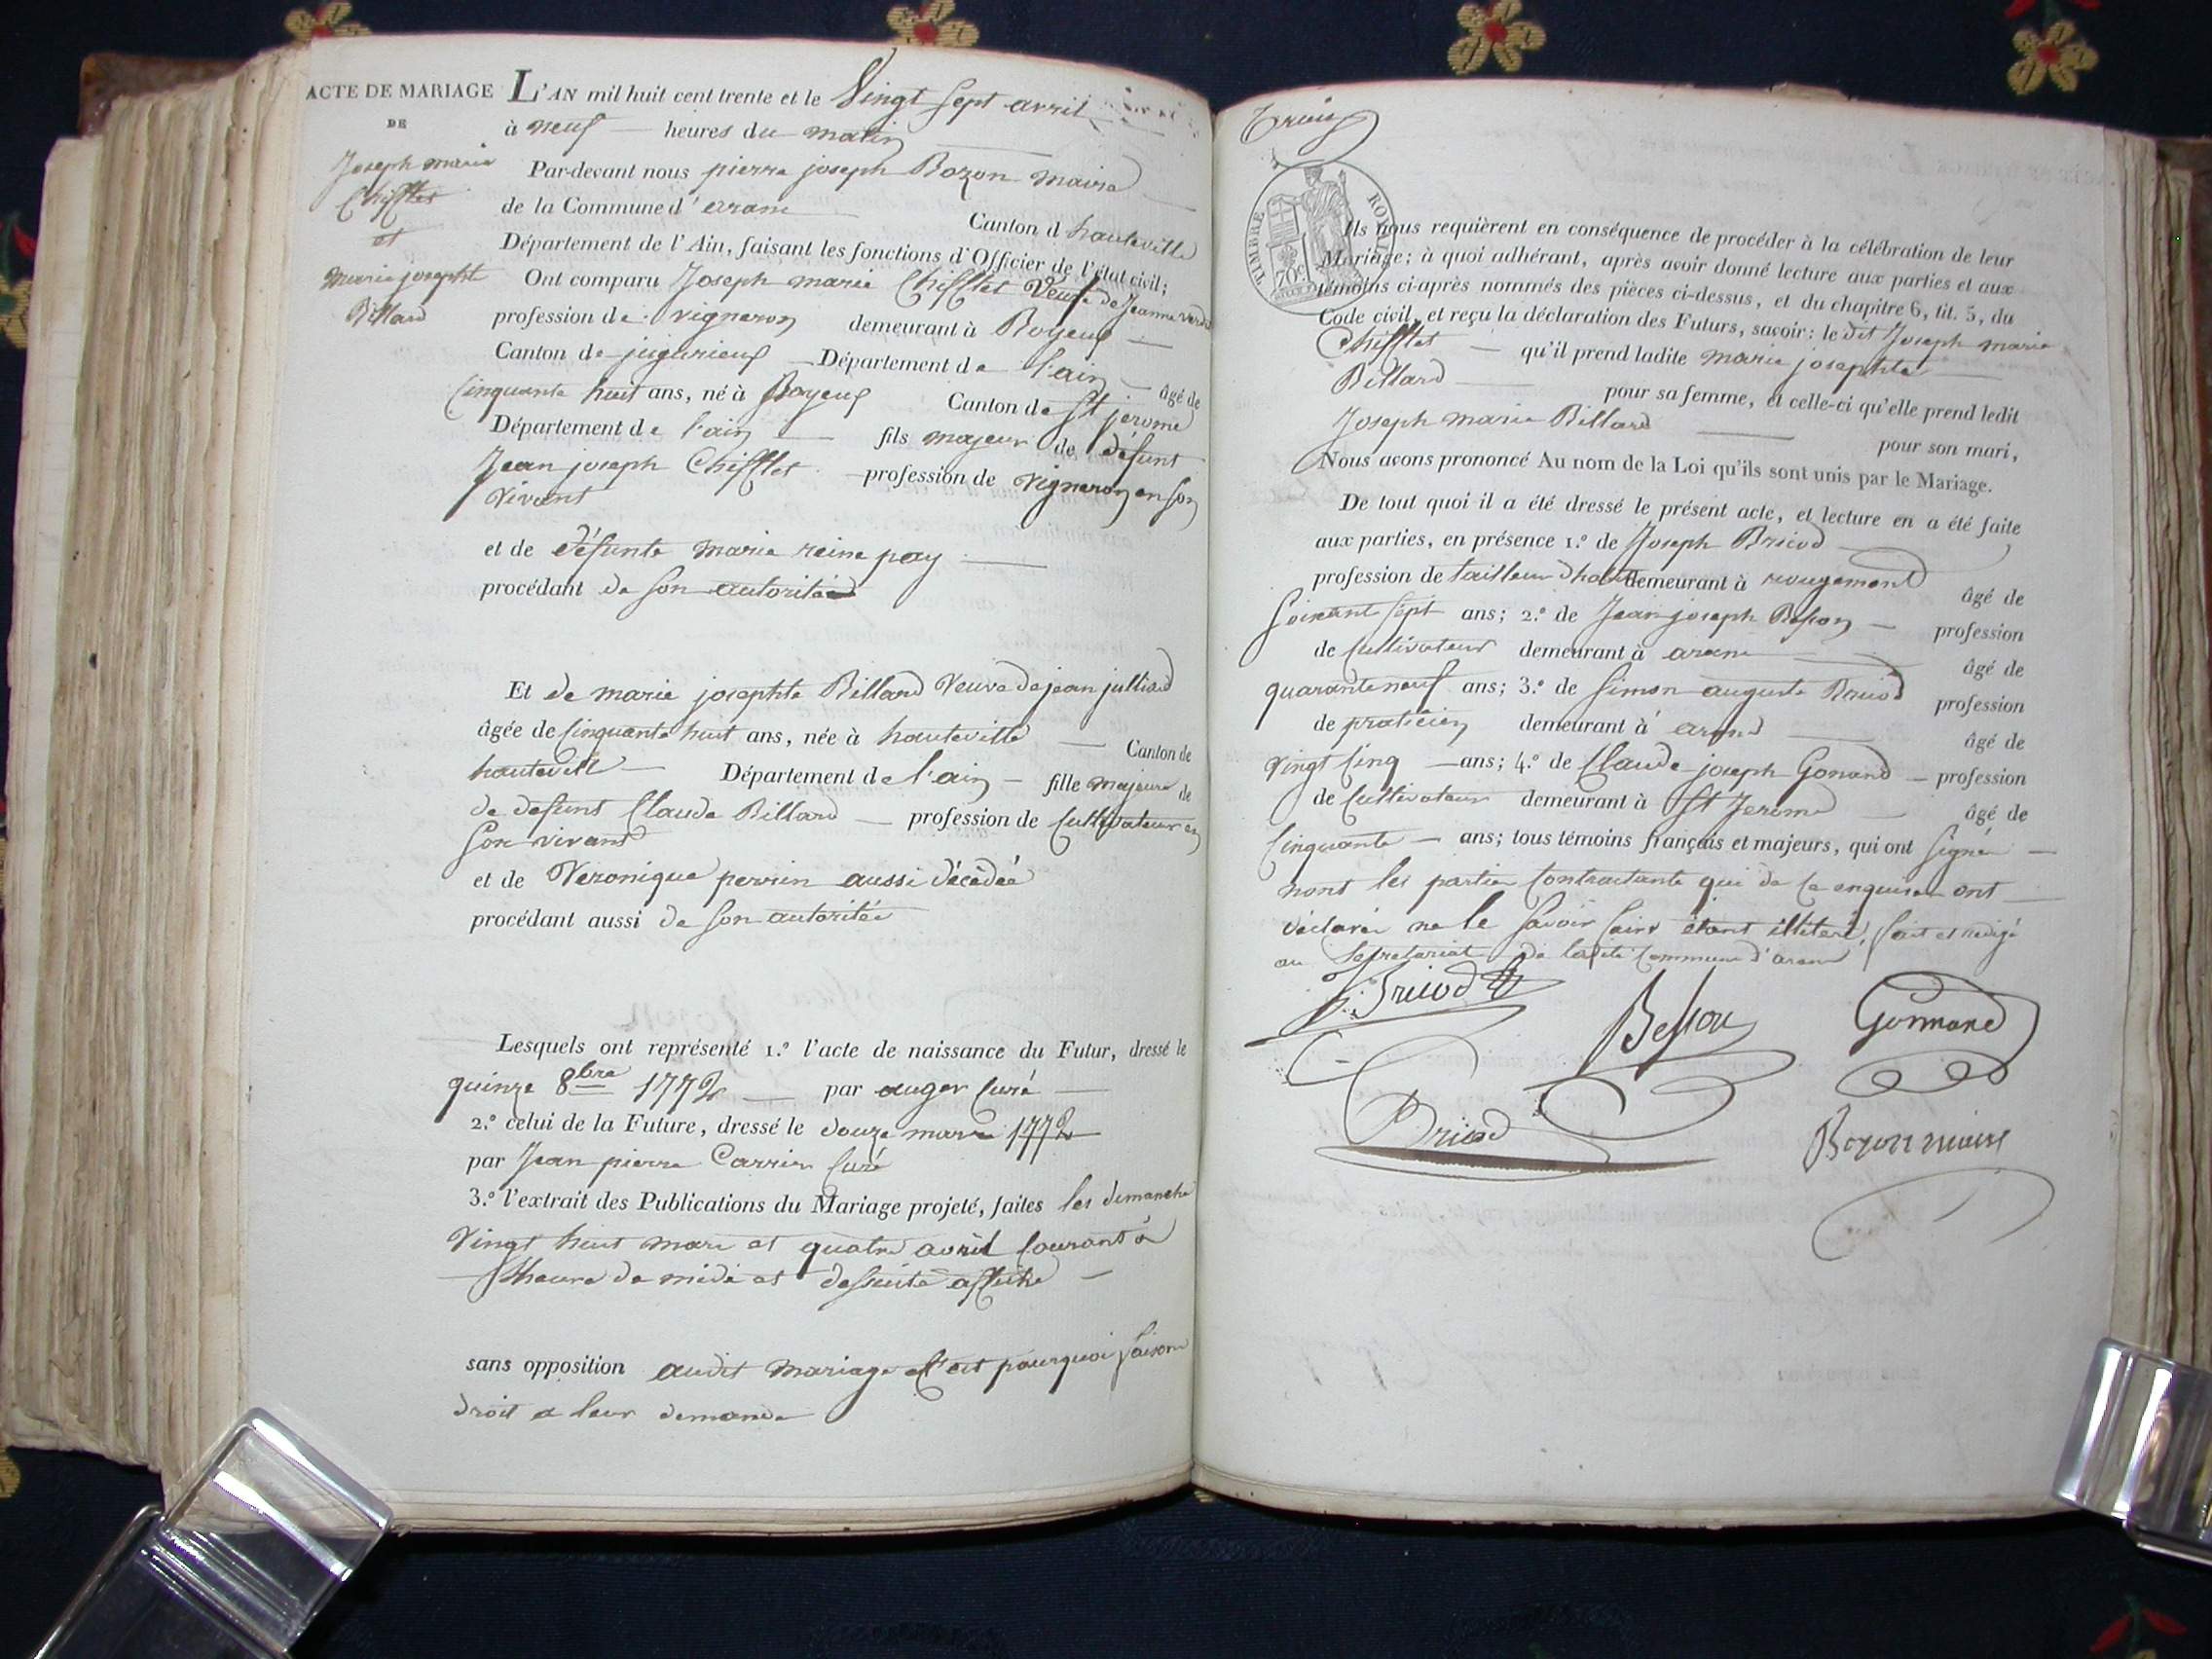 ACTE DE MARIAGE
DE
Joseph marie
Chifflet
et
Marie josephte
Billard
L'AN mil huit cent trente et le Vingt sept avril
à neuf heures du matin
Par-devant nous pierre joseph Bozon maire
de la Commune d'aranc Canton d hauteville
Département de l'Ain, faisant les fonctions d'Officier de l'état civil;
Ont comparu Joseph marie Chifflet Veuf de Jeanne
profession de vigneron demeurant à Boyeux
Canton de jugurieux Département de l'ain âgé de
Cinquante huit ans, né à Boyeux Canton de St jerome
Département de l'ain fils majeur de défunt
Jean joseph Chifflet profession de vigneron en son
vivant
et de défunte marie reine pay
procédant de son autoritée
Et de marie josephte Billard Veuve de jean julliard
âgée de Cinquante huit ans, née à hauteville Canton de
hautevill Département de l'ain fille majeure de
de defunt Claude Billard profession de Cultivateur en
son vivant
et de Veronique perrin aussi décédée
procédant aussi de son autoritée
Lesquels ont représenté 1.º l'acte de naissance du Futur, dressé le
quinze 8bre 1772 par auger Curé
2.º celui de la Future, dressé le douze mars 1772
par Jean pierre Carrier Curé
3.º l'extrait des Publications du Mariage projeté, faites les dimanche
Vingt huit mars et quatre avril Courant à
lheure de midi et desuite affiché
sans opposition audit mariage c'est pourquoi faison
droit a leur demande
TIMBRE ROYAL
70c
Ils nous requièrent en conséquence de procéder à la célébration de leur
Mariage; à quoi adhérant, après avoir donné lecture aux parties et aux
témoins ci-après nommés des pièces ci-dessus, et du chapitre 6, tit. 5, du
Code civil, et reçu la déclaration des Futurs, savoir: le dit Joseph marie
Chifflet qu'il prend ladite marie josephte
Billard pour sa femme, et celle-ci qu'elle prend ledit
Joseph marie Billard pour son mari,
Nous avons prononcé Au nom de la Loi qu'ils sont unis par le Mariage.
De tout quoi il a été dressé le présent acte, et lecture en a été faite
aux parties, en présence 1.º de Joseph Bricod
profession de tailleur dhabit demeurant à rougemont âgé de
Soixant sept ans; 2.º de Jean joseph Besson profession
de Cultivateur demeurant à aranc âgé de
quarante neuf ans; 3.º de Simon auguste Bricod profession
de praticien demeurant à aranc âgé de
Vingt Cinq ans; 4.º de Claude joseph Gonard profession
de Cultivateur demeurant à St Jerome âgé de
Cinquante ans; tous témoins français et majeurs, qui ont signé
nont les partie Contractante qui de ce enquise ont
déclaré ne le savoir faire étant illiteré, fait et redigé
au Secretariat de ladite Commune d'aranc
Bricod
Besson
Gonnard
Bricod
Bozon maire